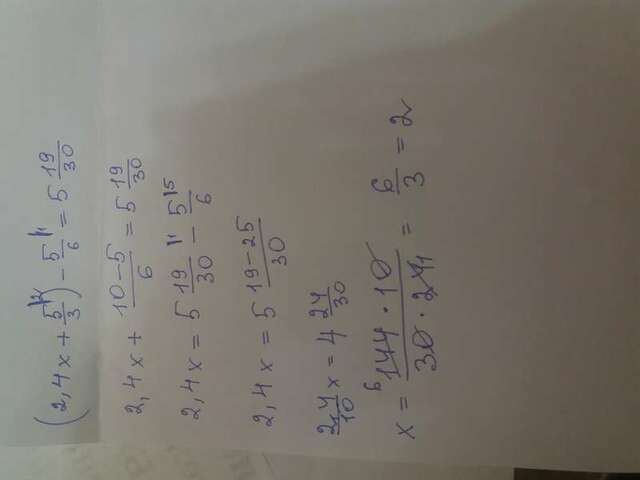 (2,4x + 5/3 |2) - 5/6 |1 = 5 19/30
2,4x + (10-5)/6 = 5 19/30
2,4x = 5 19/30 |1 - 5/6 |5
2,4x = 5 (19-25)/30
2,4/10 x = 4 24/30
x = (6 144 · 10)/(30 · 24 1) = 6/3 = 2